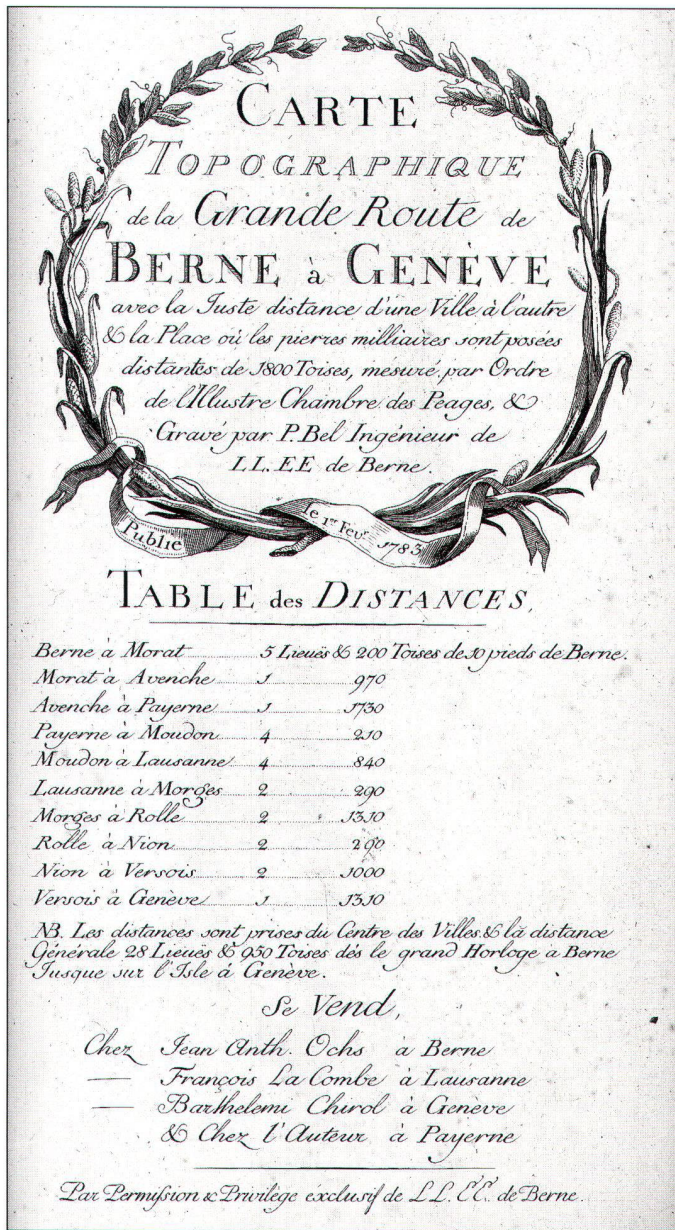 CARTE
TOPOGRAPHIQUE
de la Grande Route de
BERNE à GENÈVE
avec la Juste distance d'une Ville à l'autre
& la Place où les pierres milliaires sont posées
distantes de 1800 Toises, mesuré par Ordre
de l'Illustre Chambre des Peages, &
Gravé par P. Bel Ingénieur de
LL. EE de Berne.
Publié le 1er Fevr. 1783
TABLE des DISTANCES,
Berne à Morat 5 Lieuës & 200 Toises de 10 pieds de Berne.
Morat à Avenche 1 970
Avenche à Payerne 1 1730
Payerne à Moudon 4 210
Moudon à Lausanne 4 840
Lausanne à Morges 2 290
Morges à Rolle 2 1310
Rolle à Nion 2 290
Nion à Versois 2 1000
Versois à Genève 1 1310
NB. Les distances sont prises du Centre des Villes & la distance
Générale 28 Lieuës & 950 Toises dés le grand Horloge a Berne
Jusque sur l'Isle à Genève.
Se Vend,
Chez Jean Anth. Ochs à Berne
— François La Combe à Lausanne
— Barthelemi Chirol à Genève
& Chez l'Auteur à Payerne
Par Permission & Privilège éxclusif de LL. EE. de Berne.